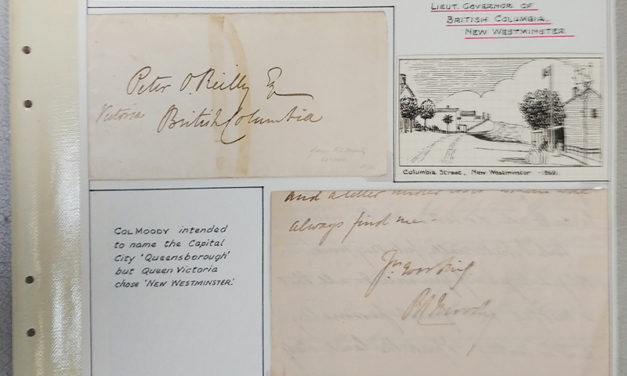 LIEUT. GOVERNOR OF
BRITISH COLUMBIA.
NEW WESTMINSTER
Peter O'Reilly Esq
Victoria British Columbia
Columbia Street, New Westminster - 1862.
COL MOODY intended
to name the Capital
City 'Queensborough'
but Queen Victoria
chose 'NEW WESTMINSTER'.
and a letter
always find me.